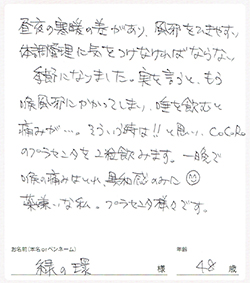 昼夜の寒暖の差があり、風邪をひきやすい
体調管理に気をつけなければならない
季節になりました。実を言うと、もう
喉風邪にかかってしまい、唾を飲むと
痛みが…。そういう時は!!と思い、CoCoRo
のプラセンタを2粒飲みます。一晩で
喉の痛みはとれ、違和感のみに
薬嫌いな私。プラセンタ様々です。
お名前(本名orペンネーム) 年齢
緑の環 様 48 歳